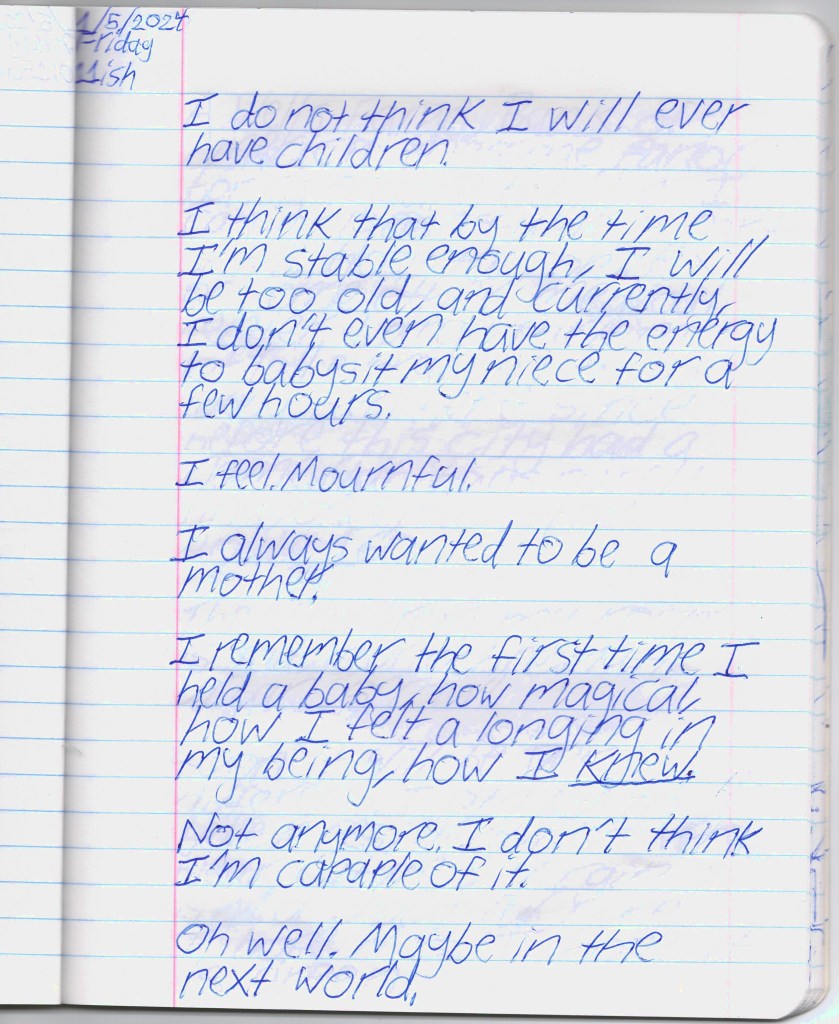 1/5/2024
Friday
11ish
I do not think I will ever
have children.
I think that by the time
I'm stable enough, I will
be too old, and currently,
I don't even have the energy
to babysit my niece for a
few hours.
I feel. Mournful.
I always wanted to be a
mother.
I remember the first time I
held a baby, how magical,
how I felt a longing in
my being, how I knew.
Not anymore. I don't think
I'm capaple of it.
Oh well. Maybe in the
next world.